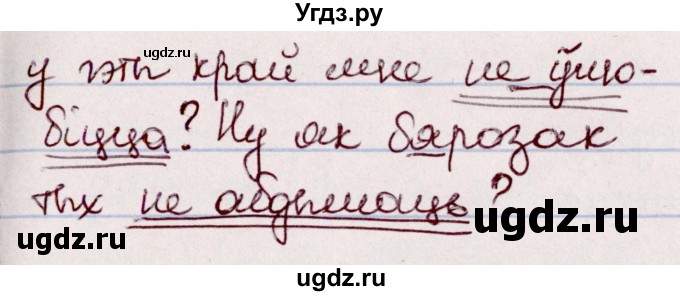 Угдз.ру
gdz.ru
gdz.ru
у гэты край мне не ўлю-
біцца? Ну як бярозак
тых не абдымаць?
ugdz.ru
ugdz.ru
ugdz.ru